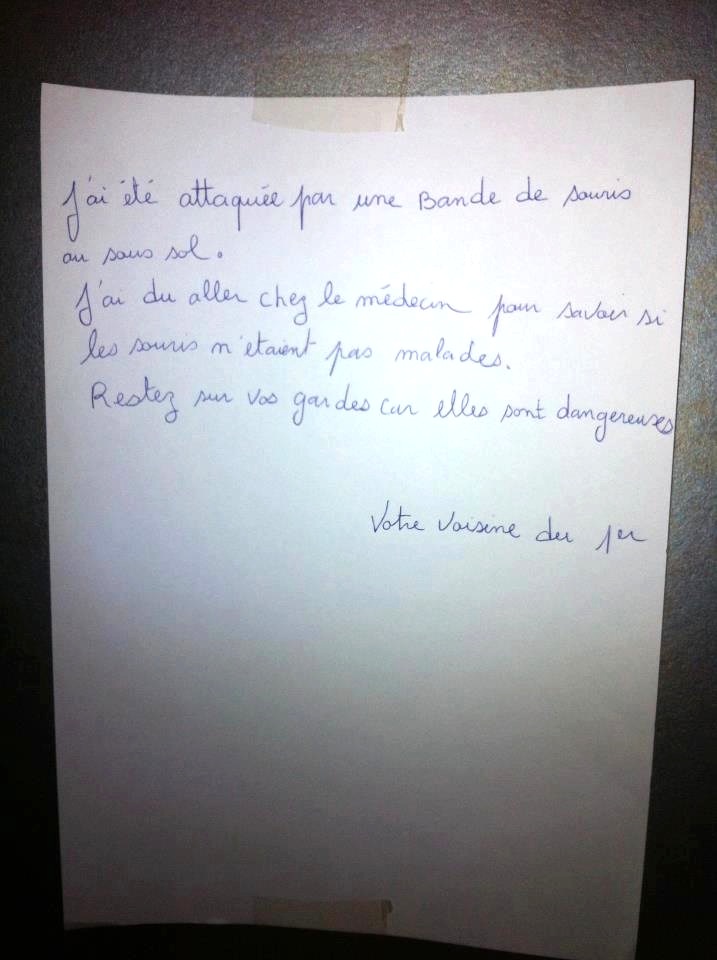 J'ai été attaquée par une Bande de souris
au sous sol.
J'ai du aller chez le médecin pour savoir si
les souris n'etaient pas malades.
Restez sur vos gardes car elles sont dangereuses
Votre voisine du 1er